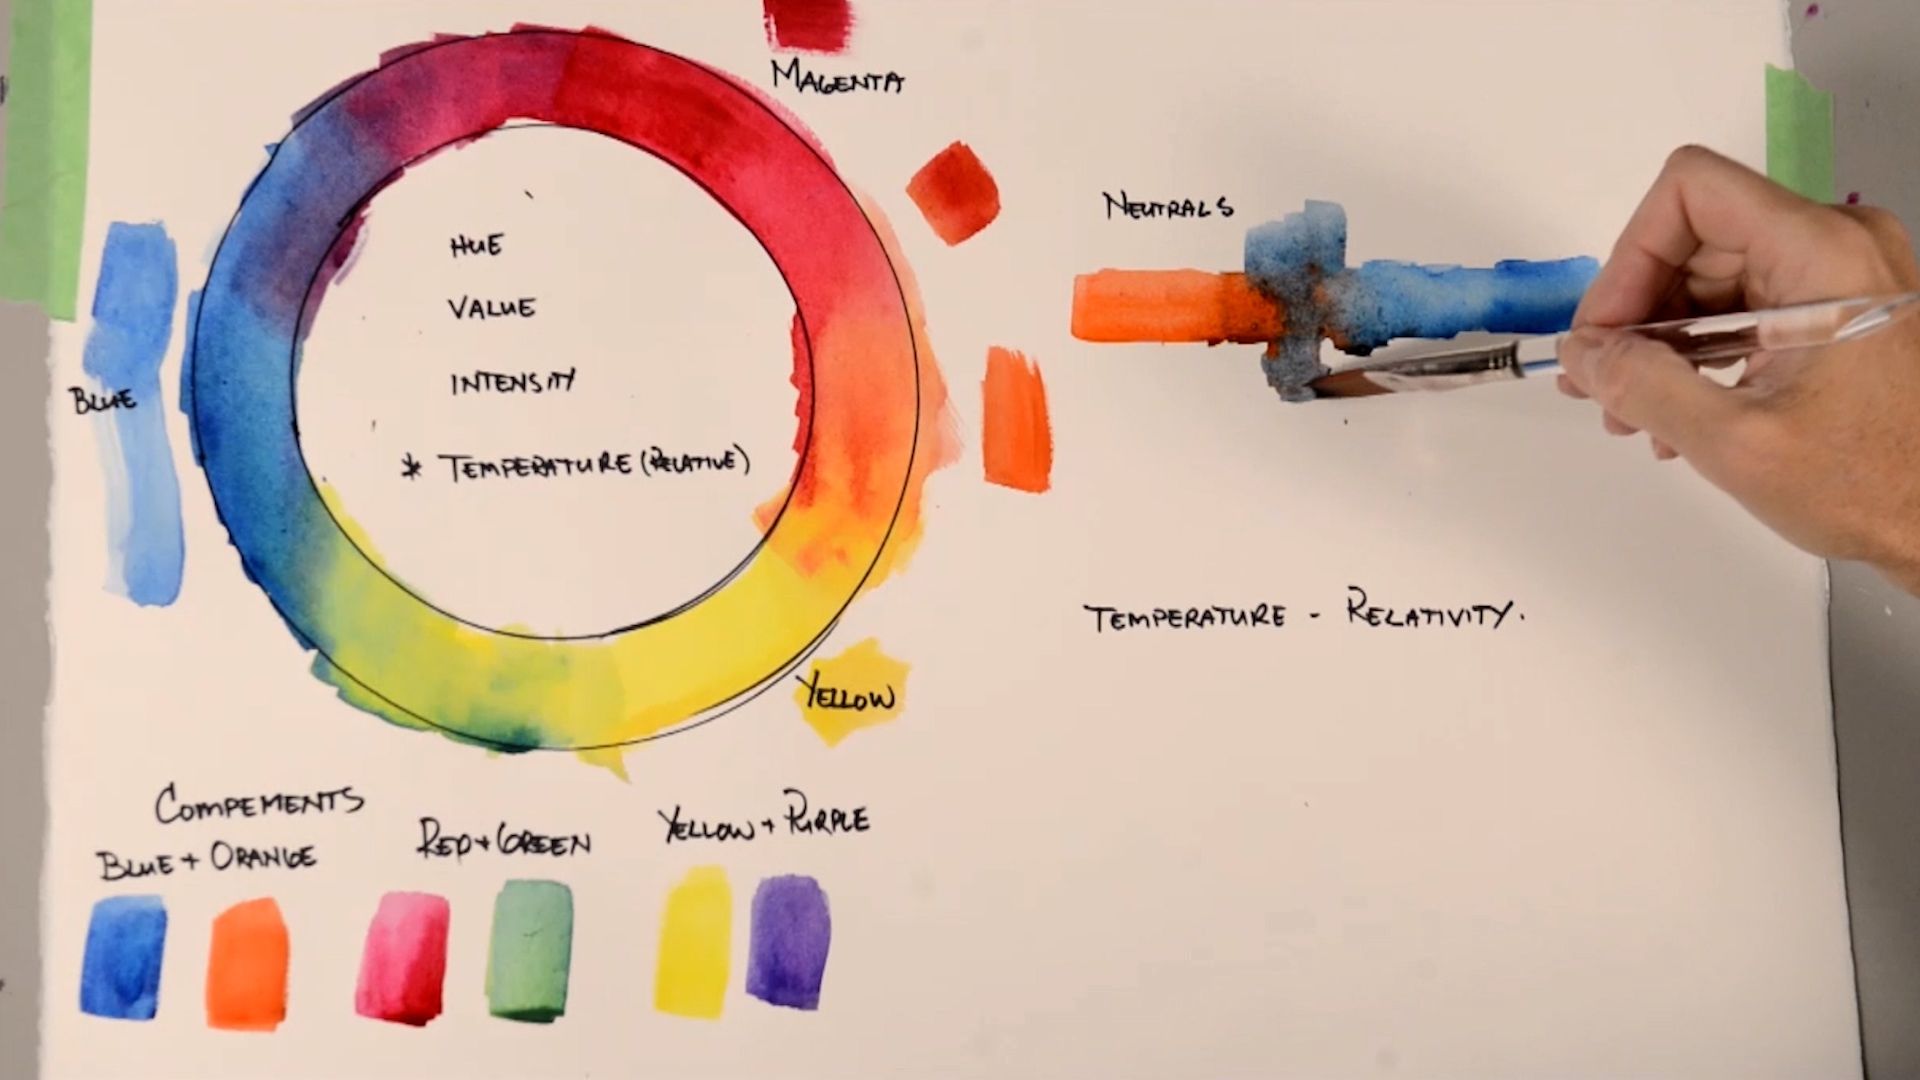 MAGENTA
NEUTRALS
HUE
VALUE
INTENSITY
* TEMPERATURE (RELATIVE)
BLUE
TEMPERATURE - RELATIVITY.
YELLOW
COMPEMENTS
BLUE + ORANGE
RED + GREEN
YELLOW + PURPLE